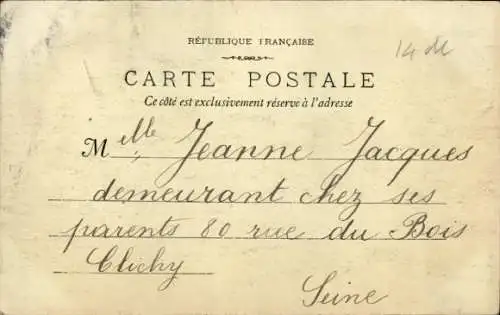 RÉPUBLIQUE FRANÇAISE
14 dl
CARTE POSTALE
Ce côté est exclusivement réservé à l'adresse
Melle Jeanne Jacques
demeurant chez ses
parents 80 rue du Bois
Clichy
Seine